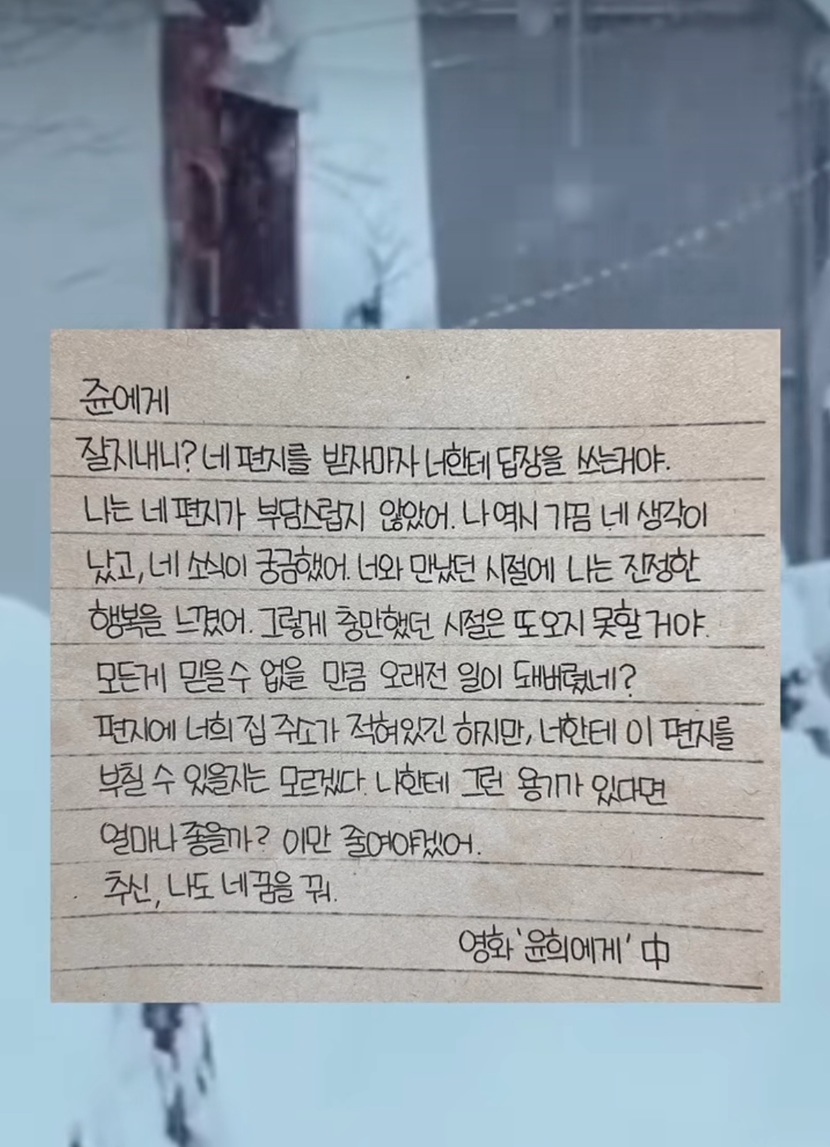 쥰에게
잘지내니? 네 편지를 받자마자 너한테 답장을 쓰는거야.
나는 네 편지가 부담스럽지 않았어. 나 역시 가끔 네 생각이
났고, 네 소식이 궁금했어. 너와 만났던 시절에 나는 진정한
행복을 느꼈어. 그렇게 충만했던 시절은 또 오지 못할 거야.
모든게 믿을 수 없을 만큼 오래전 일이 돼버렸네?
편지에 너희 집 주소가 적혀있긴 하지만, 너한테 이 편지를
부칠 수 있을지는 모르겠다. 나한테 그런 용기가 있다면
얼마나 좋을까? 이만 줄여야겠어.
추신, 나도 네 꿈을 꿔.
영화 '윤희에게' 中